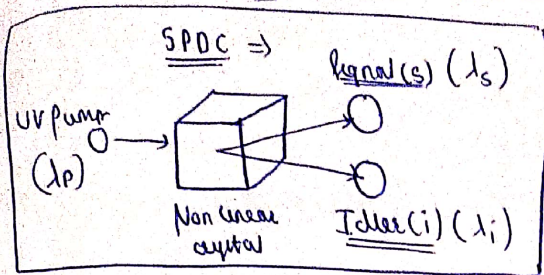 SPDC ⇒
Signal(s) (λs)
UV Pump
(λp)
Non linear
crystal
Idler(i) (λi)